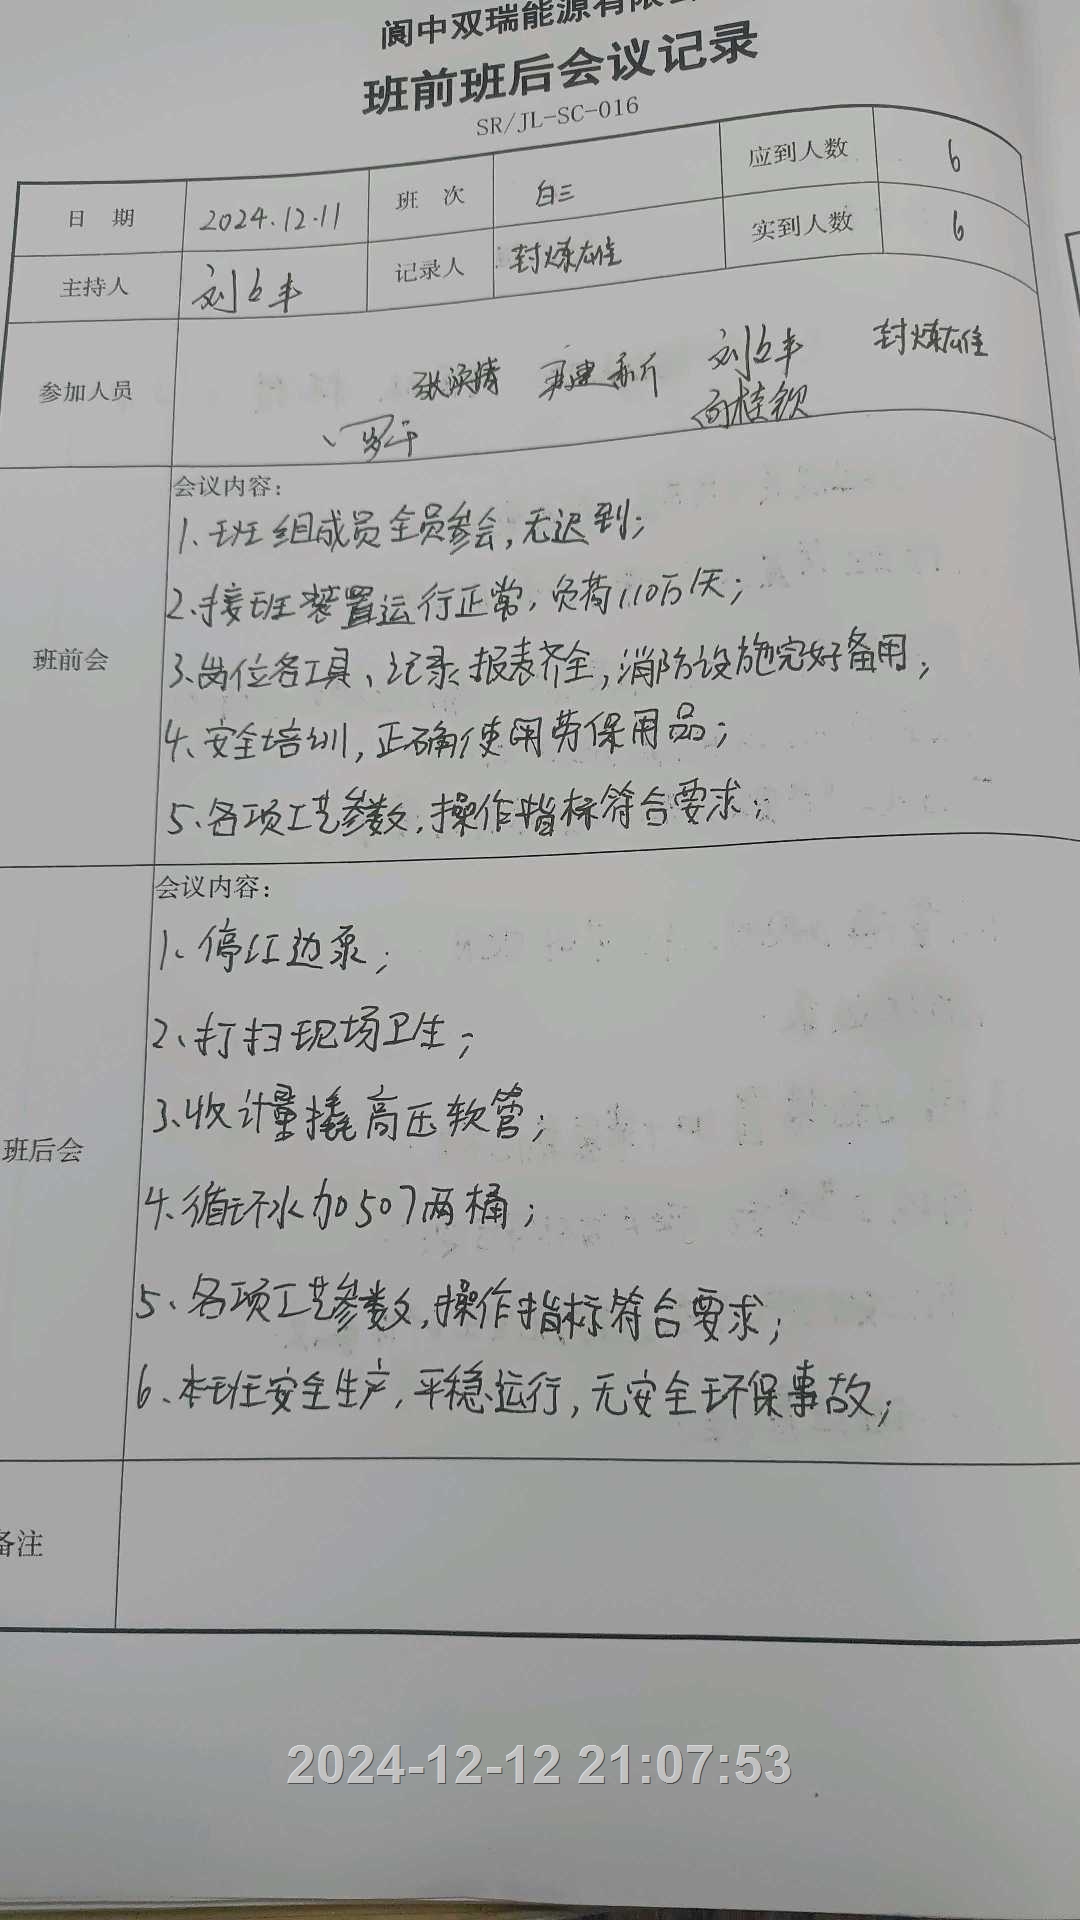 阆中双瑞能源有限公
班前班后会议记录
SR/JL-SC-016
日 期 2024.12.11 班 次 白三 应到人数 6
主持人 刘 记录人 封炼雄 实到人数 6
参加人员 刘 封炼雄
向桂钦
班前会
会议内容:
1、班组成员全员参会,无迟到;
2、接班装置运行正常,负荷110万/天;
3、岗位各工具、记录报表齐全,消防设施完好备用;
4、安全培训,正确使用劳保用品;
5、各项工艺参数,操作指标符合要求;
班后会
会议内容:
1、停江边泵;
2、打扫现场卫生;
3、收计量撬高压软管;
4、循环水加507两桶;
5、各项工艺参数,操作指标符合要求;
6、本班安全生产,平稳运行,无安全环保事故;
备注
2024-12-12 21:07:53